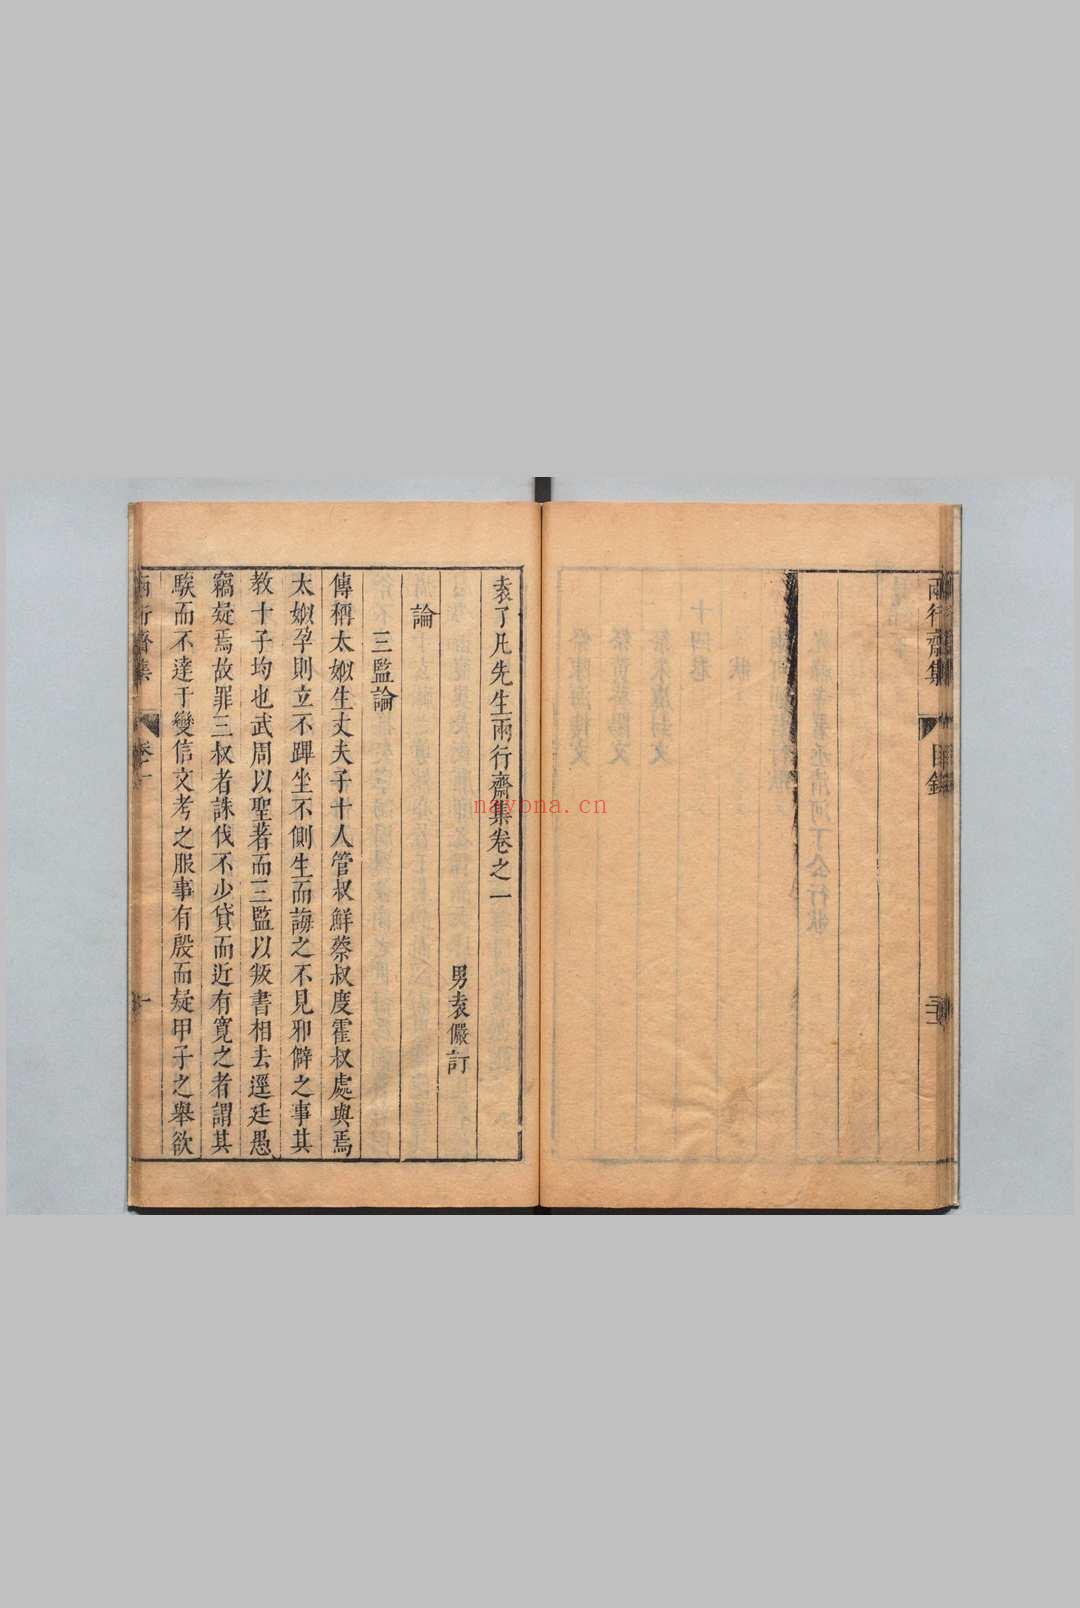 兩行齋集
目錄
袁了凡先生兩行齋集卷之一
男袁儼訂
論
三監論
傳稱太姒生丈夫子十人管叔鮮蔡叔度霍叔處與焉
太姒孕則立不蹕坐不側生而誨之不見邪僻之事其
教十子均也武周以聖著而三監以叛書相去逕廷愚
竊疑焉故罪三叔者誅伐不少貸而近有寬之者謂其
騃而不達于變信文考之服事有殷而疑甲子之舉欲
兩行齋集
卷一
一
nayona.cn